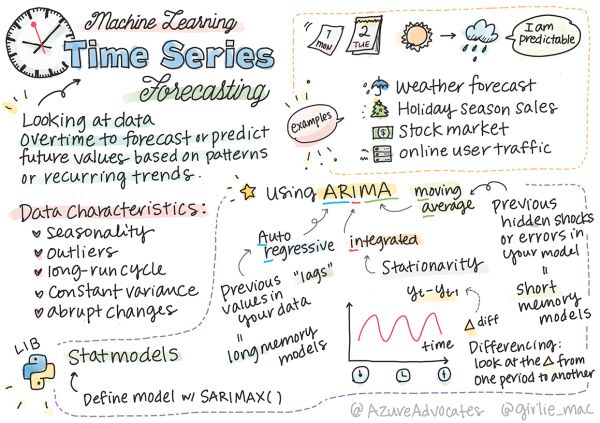 Machine Learning
Time Series
Forecasting
Looking at data
overtime to forecast or predict
future values based on patterns
or recurring trends.
1
MON
2
TUE
I am
predictable
examples
Weather forecast
Holiday season sales
$
Stock market
online user traffic
Data Characteristics:
seasonality
outliers
long-run cycle
constant variance
abrupt changes
LIB
Statmodels
Define model w/ SARIMAX()
Using ARIMA
moving
average
Previous
hidden shocks
or errors in
your model
=
short
memory
models
Auto
regressive
Previous "lags"
values in
your data
=
long memory
models
integrated
Stationarity
yt-yt-1
△ diff
Differencing:
look at the △ from
one period to another
time
@AzureAdvocates @girlie_mac